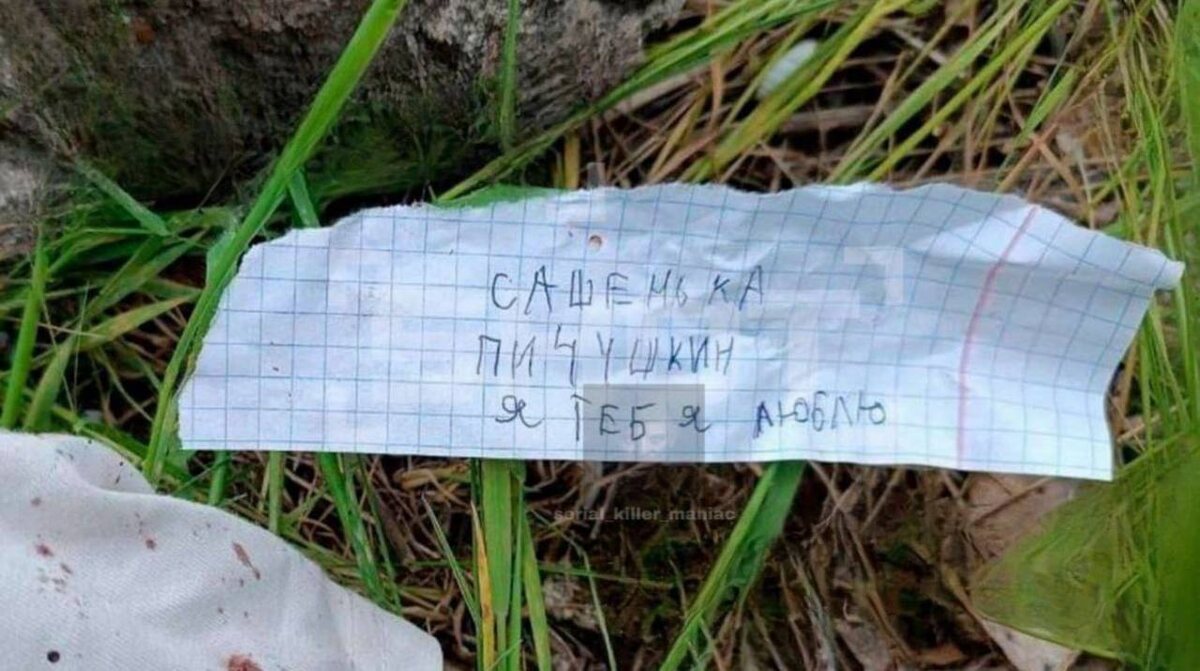 САШЕНЬКА
ПИЧУШКИН
Я ТЕБЯ ЛЮБЛЮ
serial_killer_maniac